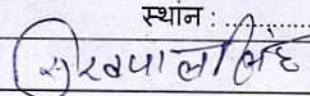 स्थान : ..............
सुखपाल सिंह